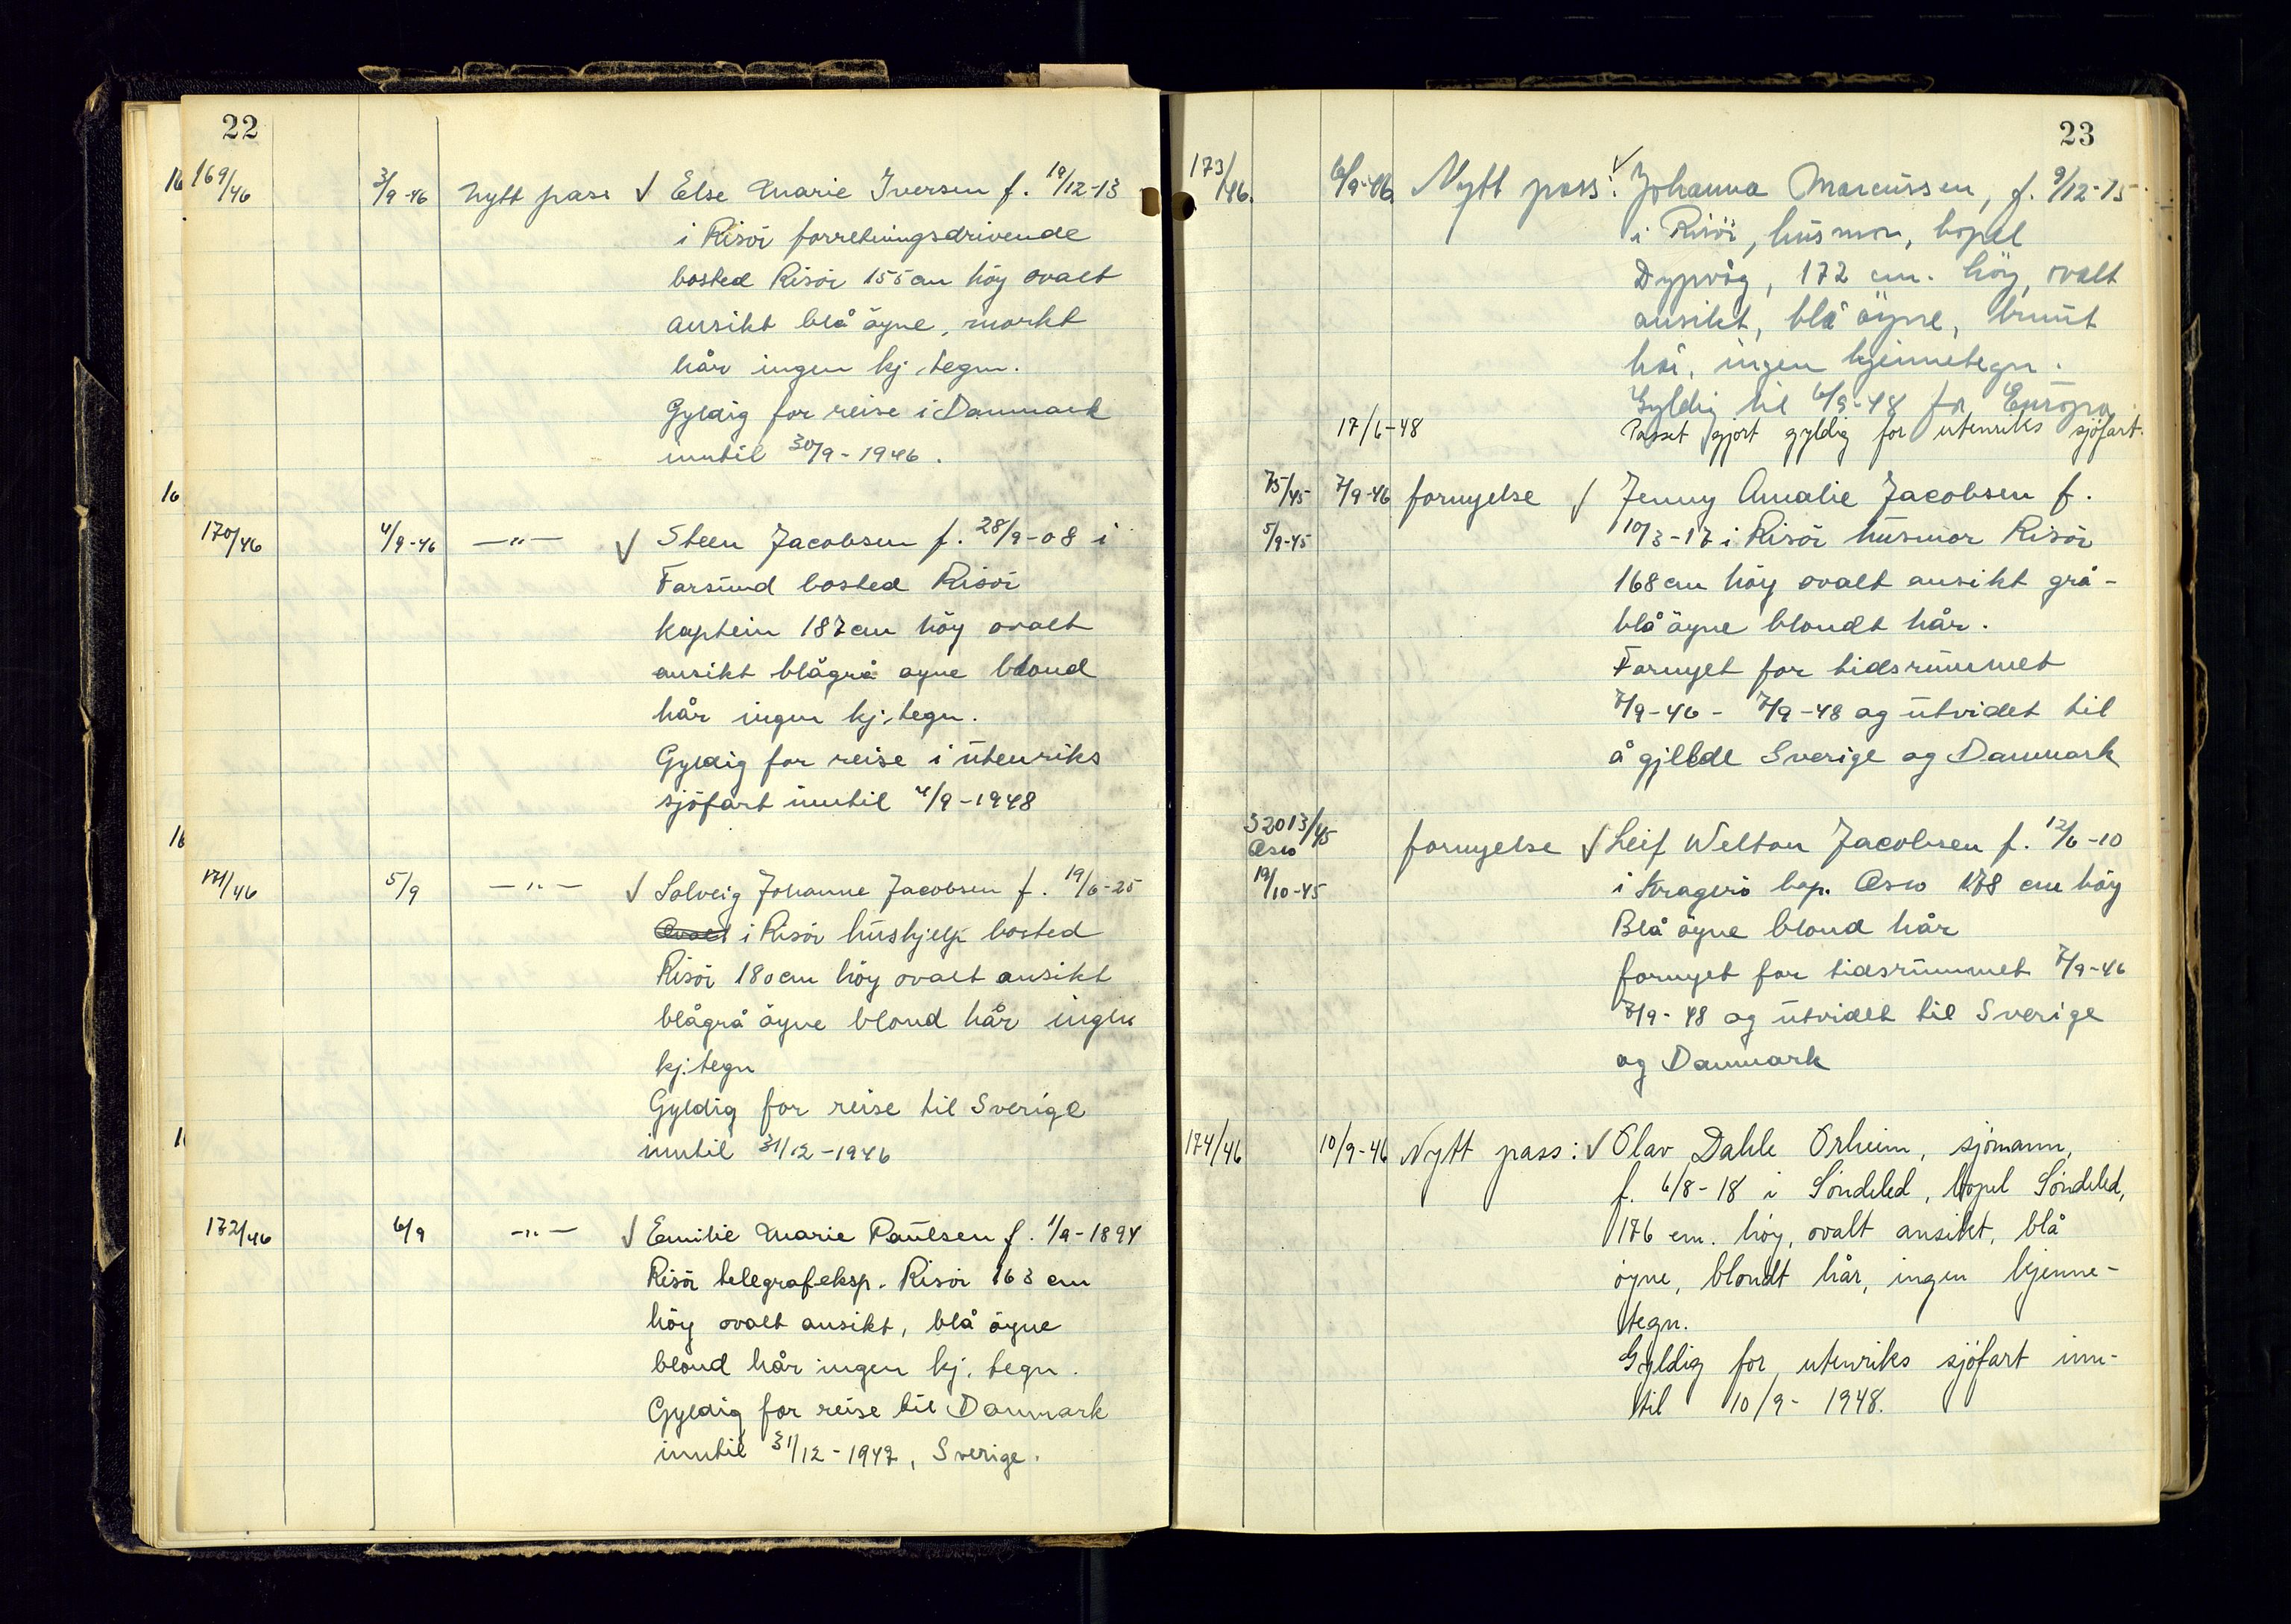 22
169/46 3/9-46 Nytt pass √ Else Marie Iversen f. 19/12-13
i Risör forretningsdrivende
bosted Risör 155 cm höy ovalt
ansikt blå öyne, mørkt
hår ingen kj. tegn.
Gyldig for reise i Danmark
inntil 30/9-1946.
170/46 4/9-46 —"— √ Steen Jacobsen f. 28/9-08 i
Farsund bosted Risör
kaptein 187 cm höy ovalt
ansikt blågrå öyne blond
hår ingen kj. tegn.
Gyldig for reise i utenriks
sjöfart inntil 4/9-1948
171/46 5/9 —"— √ Solveig Johanne Jacobsen f. 19/6-25
i Risör hushjelp bosted
Risör 180 cm höy ovalt ansikt
blågrå öyne blond hår ingen
kj. tegn
Gyldig for reise til Sverige
inntil 31/12-1946
172/46 6/9 —"— √ Emilie Marie Paulsen f. 1/9-1894
Risör telegrafeksp. Risör 163 cm
höy ovalt ansikt, blå öyne
blond hår ingen kj. tegn.
Gyldig for reise til Danmark
inntil 31/12-1947, Sverige.
23
173/46. 6/9-46. Nytt pass: √ Johanna Marcussen, f. 9/12-15
i Risör, husmor, bopel
Dypvåg, 172 cm. höy, ovalt
ansikt, blå öyne, brunt
hår, ingen kjennetegn.
Gyldig til 6/9-48 for Europa.
17/6-48 Passet gjort gyldig for utenriks sjöfart.
75/45 7/9-46 fornyelse √ Jenny Amalie Jacobsen f.
5/9-45 10/3-17 i Risör husmor Risör
168 cm höy ovalt ansikt grå-
blå öyne blondt hår.
Fornyet for tidsrummet
7/9-46 - 7/9-48 og utvidet til
å gjellde Sverige og Danmark
S2013/45 fornyelse √ Leif Welton Jacobsen f. 12/6-10
Oslo
19/10-45 i Kragerö bop. Oslo 178 cm höy
Blå öyne blond hår
fornyet for tidsrummet 7/9-46
7/9-48 og utvidet til Sverige
og Danmark
174/46 10/9-46 Nytt pass: √ Olav Dahle Orheim, sjömann,
f. 6/8-18 i Söndeled, bopel Söndeled,
176 cm. höy, ovalt ansikt, blå
öyne, blondt hår, ingen kjenne-
tegn.
Gyldig for utenriks sjöfart inn-
til 10/9-1948.